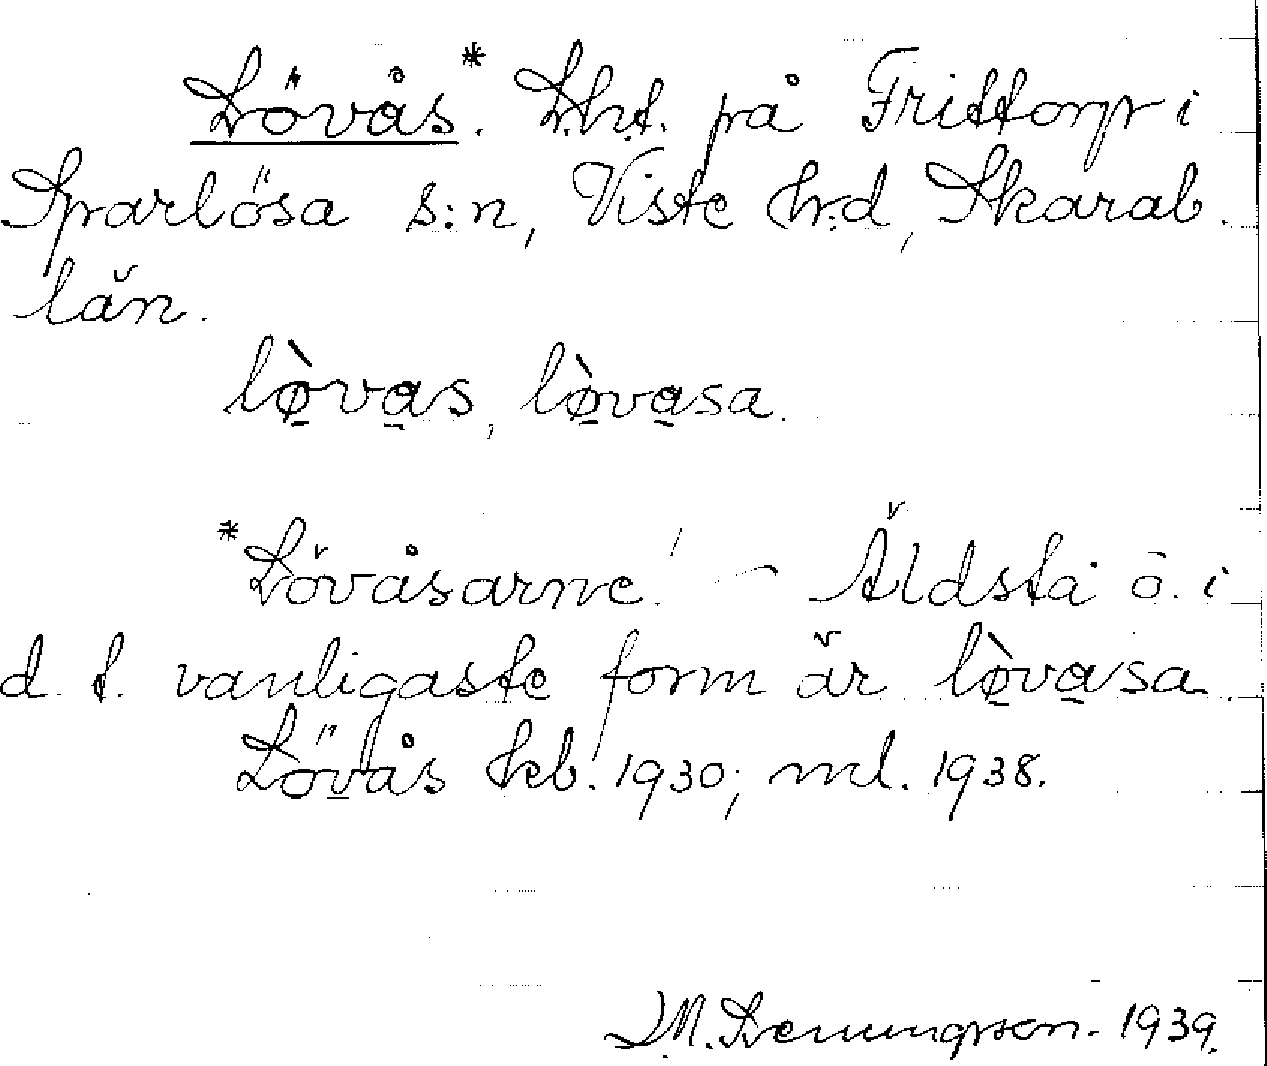 Lövås.* Lht. på Frittorp i
Sparlösa s:n, Viste hd, Skarab.
län.
lø̀vas, lø̀vasa.
*Lövåsarne! – Äldsta o. i
d. t. vanligaste form är lø̀vasa.
Lövås kb. 1930; ml. 1938.
M. 1939.